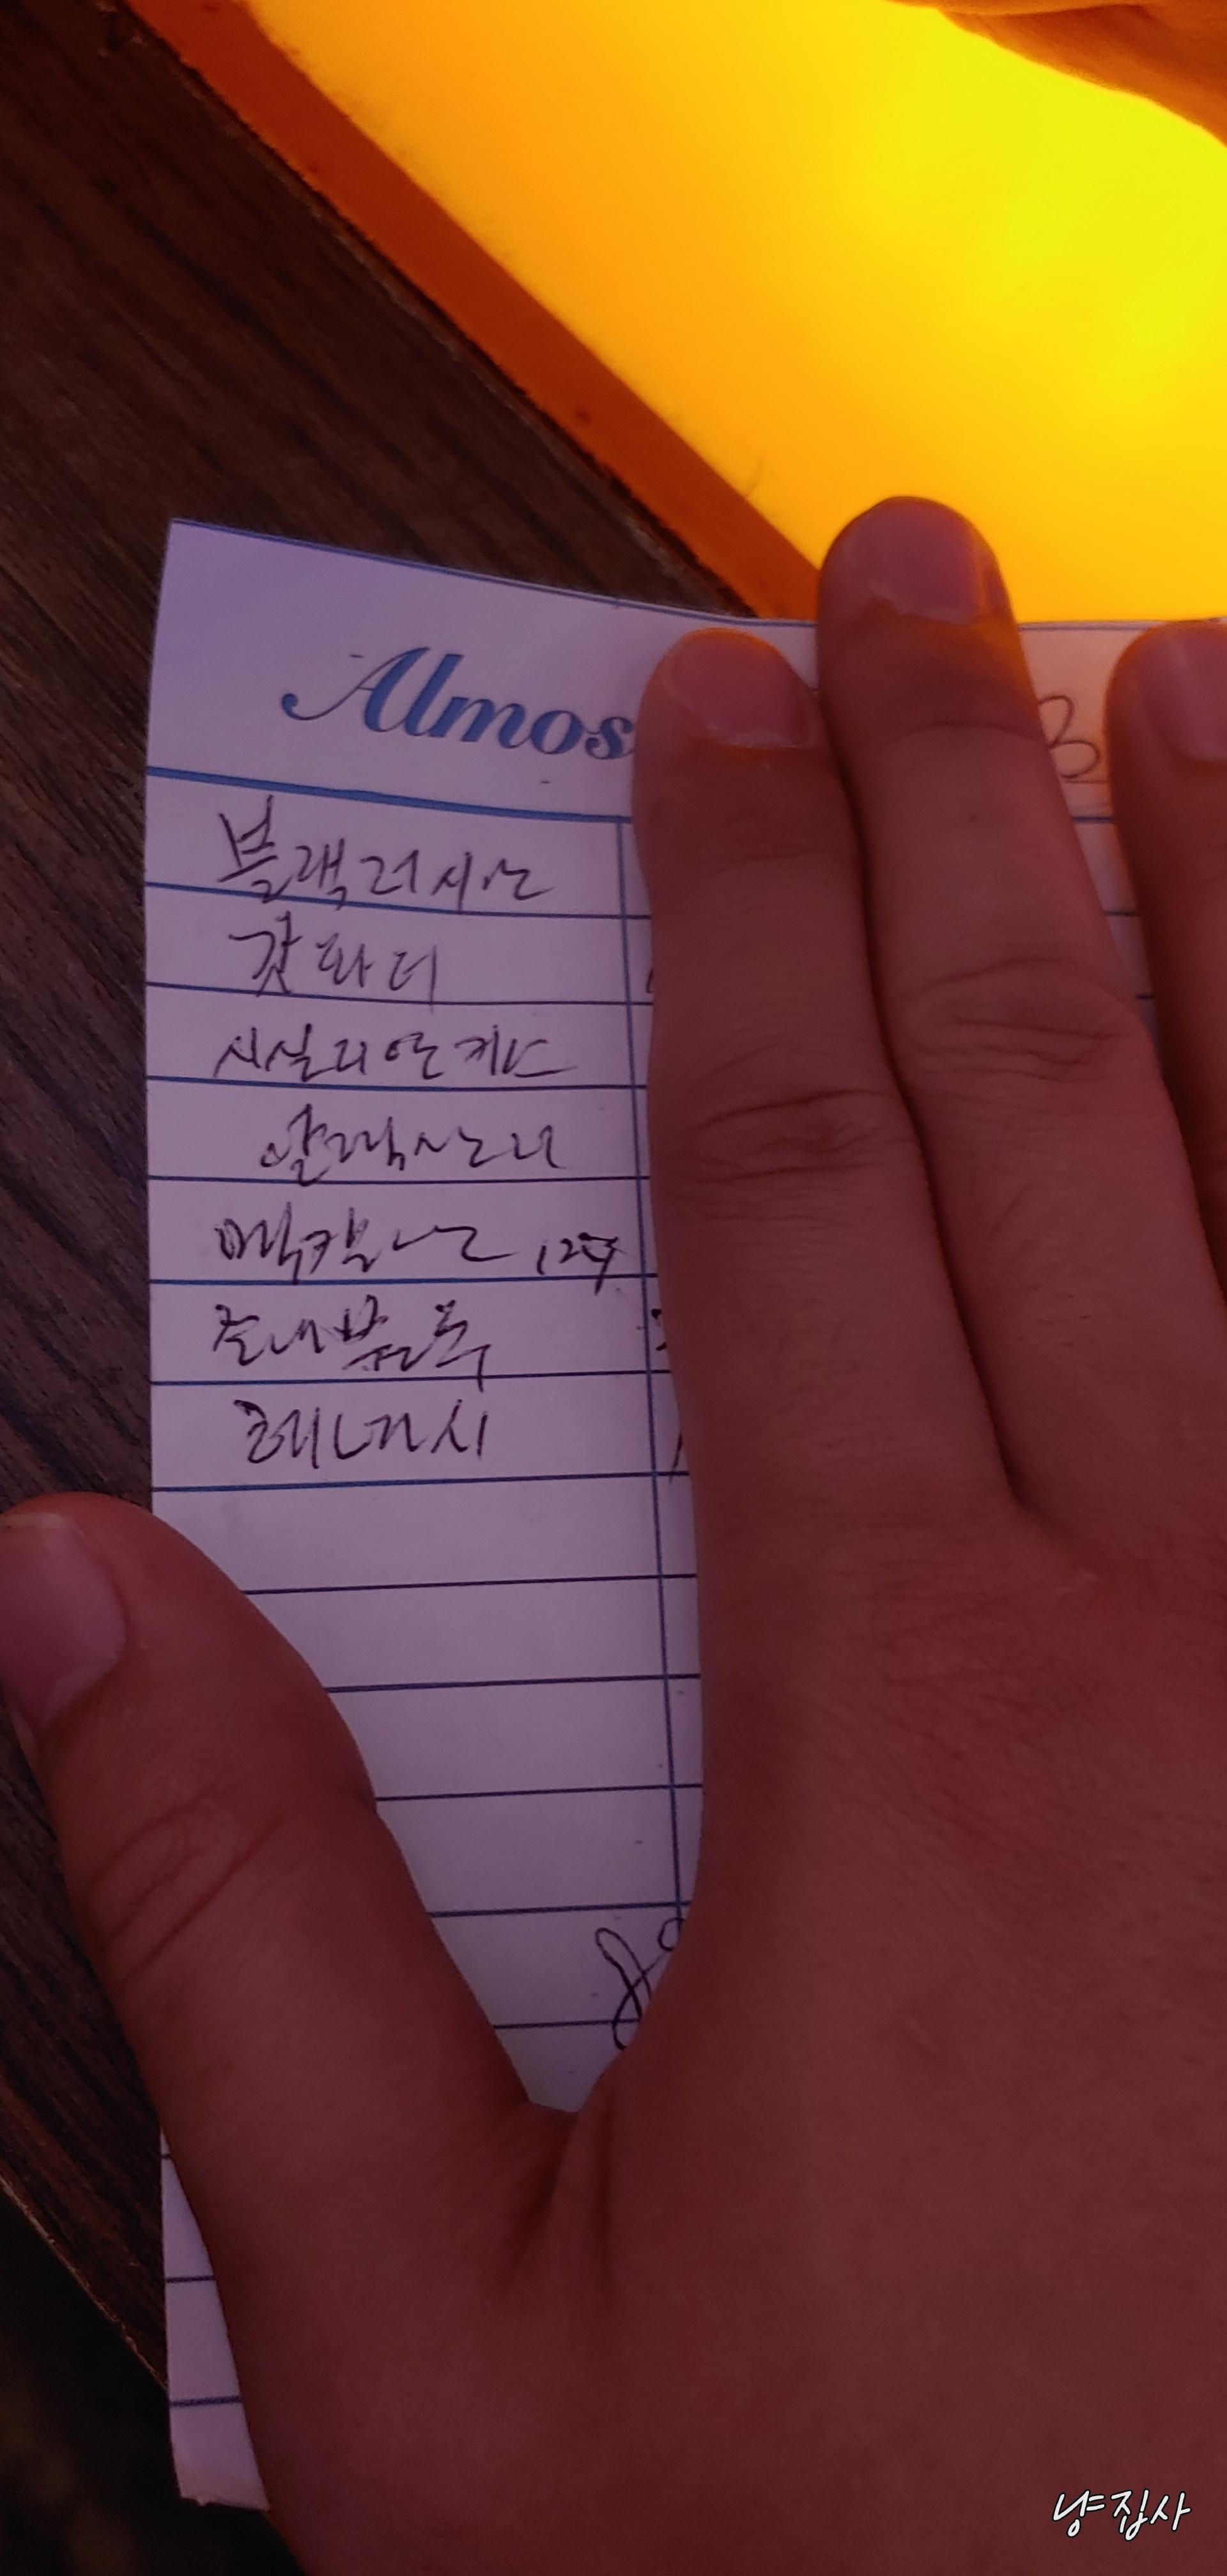 Almos
블랙러시안
갓파더
시실리안키스
알렉산더
맥캘란 12y
글렌
헤네시
냥집사